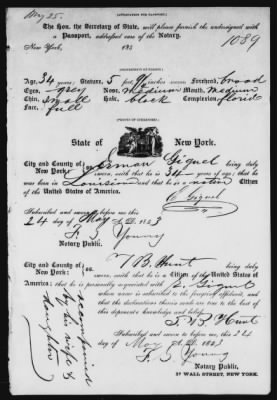 May 25.
(APPLICATION FOR PASSPORT.)
The Hon. the Secretary of State, will please furnish the undersigned with
a Passport, addressed care of the Notary.
New York, 185
1089
(DESCRIPTION OF PERSON.)
Age, 34 years; Stature, 5 feet inches Forehead, broad
Eyes, grey Nose, medium Mouth, medium
Chin, small Hair, black Complexion, florid
Face, full
(PROOFS OF CITIZENSHIP.)
State of New York.
City and County of New York: Giquel being duly
sworn, saith that he is 34 years of age; that he
was born in Louisiana and is a native Citizen
of the United States of America.
Giquel
Subscribed and sworn before me this
24 day of May
F. S. Young
Notary Public.
City and County of New York: ss. T. B. Hunt being duly
sworn, saith that he is a Citizen of the United States of
America; that he is personally acquainted with Giquel
who is subscribed to the foregoing affidavit, and
that the declarations therein are true to the best of
this deponent's knowledge and belief.
T. B. Hunt
Subscribed and sworn to before me, this 24
day of May
F. S. Young
Notary Public,
27 WALL STREET, NEW YORK.
accompanied
by his wife &
daughter